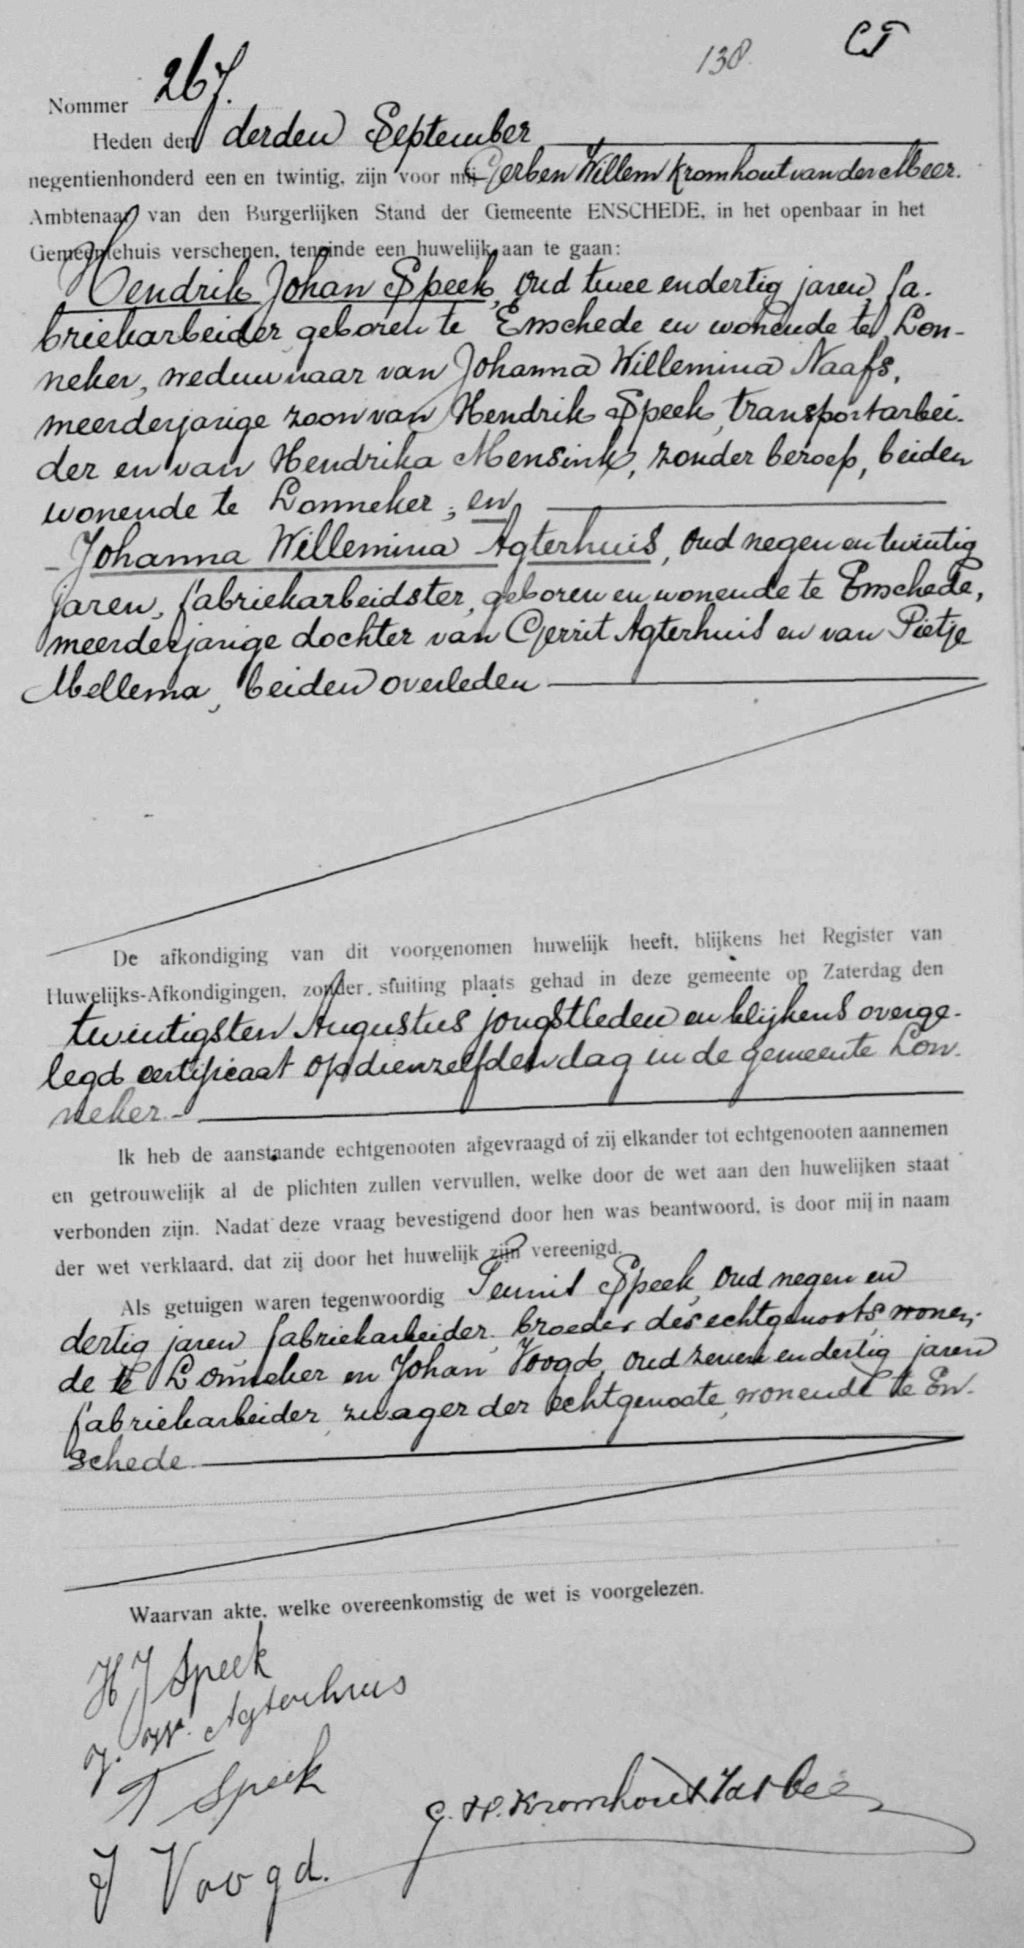 138.
CT
Nommer 267.
Heden den derden September
negentienhonderd een en twintig, zijn voor mij Gerben Willem Kromhout van der Meer.
Ambtenaar van den Burgerlijken Stand der Gemeente ENSCHEDE, in het openbaar in het
Gemeentehuis verschenen, teneinde een huwelijk aan te gaan:
Hendrik Johan Speek, oud twee en dertig jaren, fa-
briekarbeider, geboren te Enschede en wonende te Lon-
neker, weduwnaar van Johanna Willemina Naafs,
meerderjarige zoon van Hendrik Speek, transportarbei-
der en van Hendrika Mensink, zonder beroep, beiden
wonende te Lonneker; en
Johanna Willemina Agterhuis, oud negen en twintig
jaren, fabriekarbeidster, geboren en wonende te Enschede,
meerderjarige dochter van Gerrit Agterhuis en van Pietje
Mellema, beiden overleden
De afkondiging van dit voorgenomen huwelijk heeft, blijkens het Register van
Huwelijks-Afkondigingen, zonder stuiting plaats gehad in deze gemeente op Zaterdag den
twintigsten Augustus jongstleden en blijkens overge-
legd certificaat op dienzelfden dag in de gemeente Lon-
neker.
Ik heb de aanstaande echtgenooten afgevraagd of zij elkander tot echtgenooten aannemen
en getrouwelijk al de plichten zullen vervullen, welke door de wet aan den huwelijken staat
verbonden zijn. Nadat deze vraag bevestigend door hen was beantwoord, is door mij in naam
der wet verklaard, dat zij door het huwelijk zijn vereenigd.
Als getuigen waren tegenwoordig Teunis Speek, oud negen en
dertig jaren, fabriekarbeider, broeder des echtgenoots, wonen-
de te Lonneker en Johan Voogd, oud zeven en dertig jaren
fabriekarbeider, zwager der echtgenoote, wonende te En-
schede
Waarvan akte, welke overeenkomstig de wet is voorgelezen.
H J Speek
J. W. Agterhuis
T Speek
G. W. Kromhout vd Meer
J Voogd.